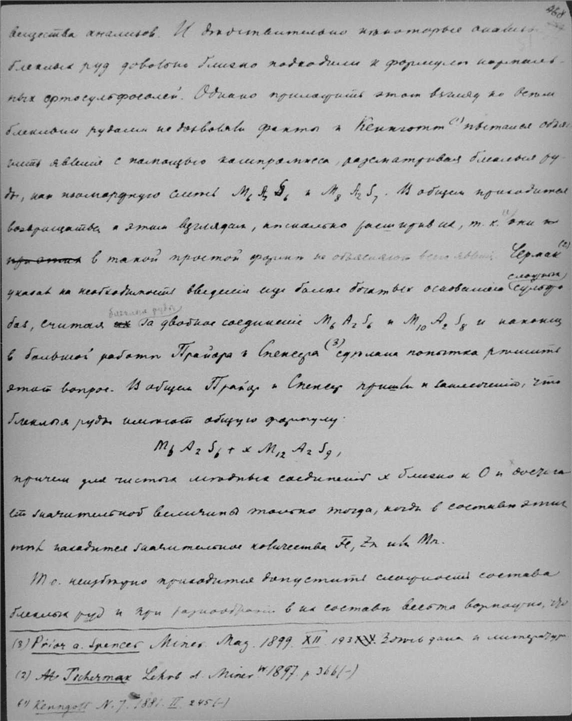 вещества анализов. И действительно некоторые анализы
блеклых руд довольно близко подходили к формулам нормаль-
ных сульфосолей. Однако приложить этот взгляд ко всем
блеклым рудам не дозволяли факты и Кеннготт (1) пытался объяс-
нить явление с помощью компромисса, рассматривая блеклыя ру-
ды, как изоморфную смесь M6 A2 S6 и M8 A2 S7. В общем приходится
возвращаться к этим взглядам, несколько расширив их, т. к. они
в такой простой форме не объясняют всех явлений. Чермак (2)
указал на необходимость введения еще более богатых основанием сложных сульфо
баз, считая блеклыя руды за двойное соединение M6 A2 S6 и M10 A2 S8 и наконец
в большой работе Прайора и Спенсера (3) сделана попытка решить
этот вопрос. В общем Прайор и Спенсер пришли к заключению, что
блеклыя руды имеют общую формулу:
M6 A2 S6 + x M12 A2 S9,
причем для чистых медных соединений x близко к 0 и достига
ет значительной величины только тогда, когда в составе этих
находится значительное количества Fe, Zn или
Т. е. неизбежно приходится допустить сложность состава
блеклых руд и при разнообразии в их составе весьма
(3) Prior a. Spencer Miner. Mag. 1899. XII. 193. Здесь дана и литература
(2) Tschermak Lehrb d. Miner 1897 p 366 (-)
(1) Kenngott N. J. 1881. II. 245 (-)
468